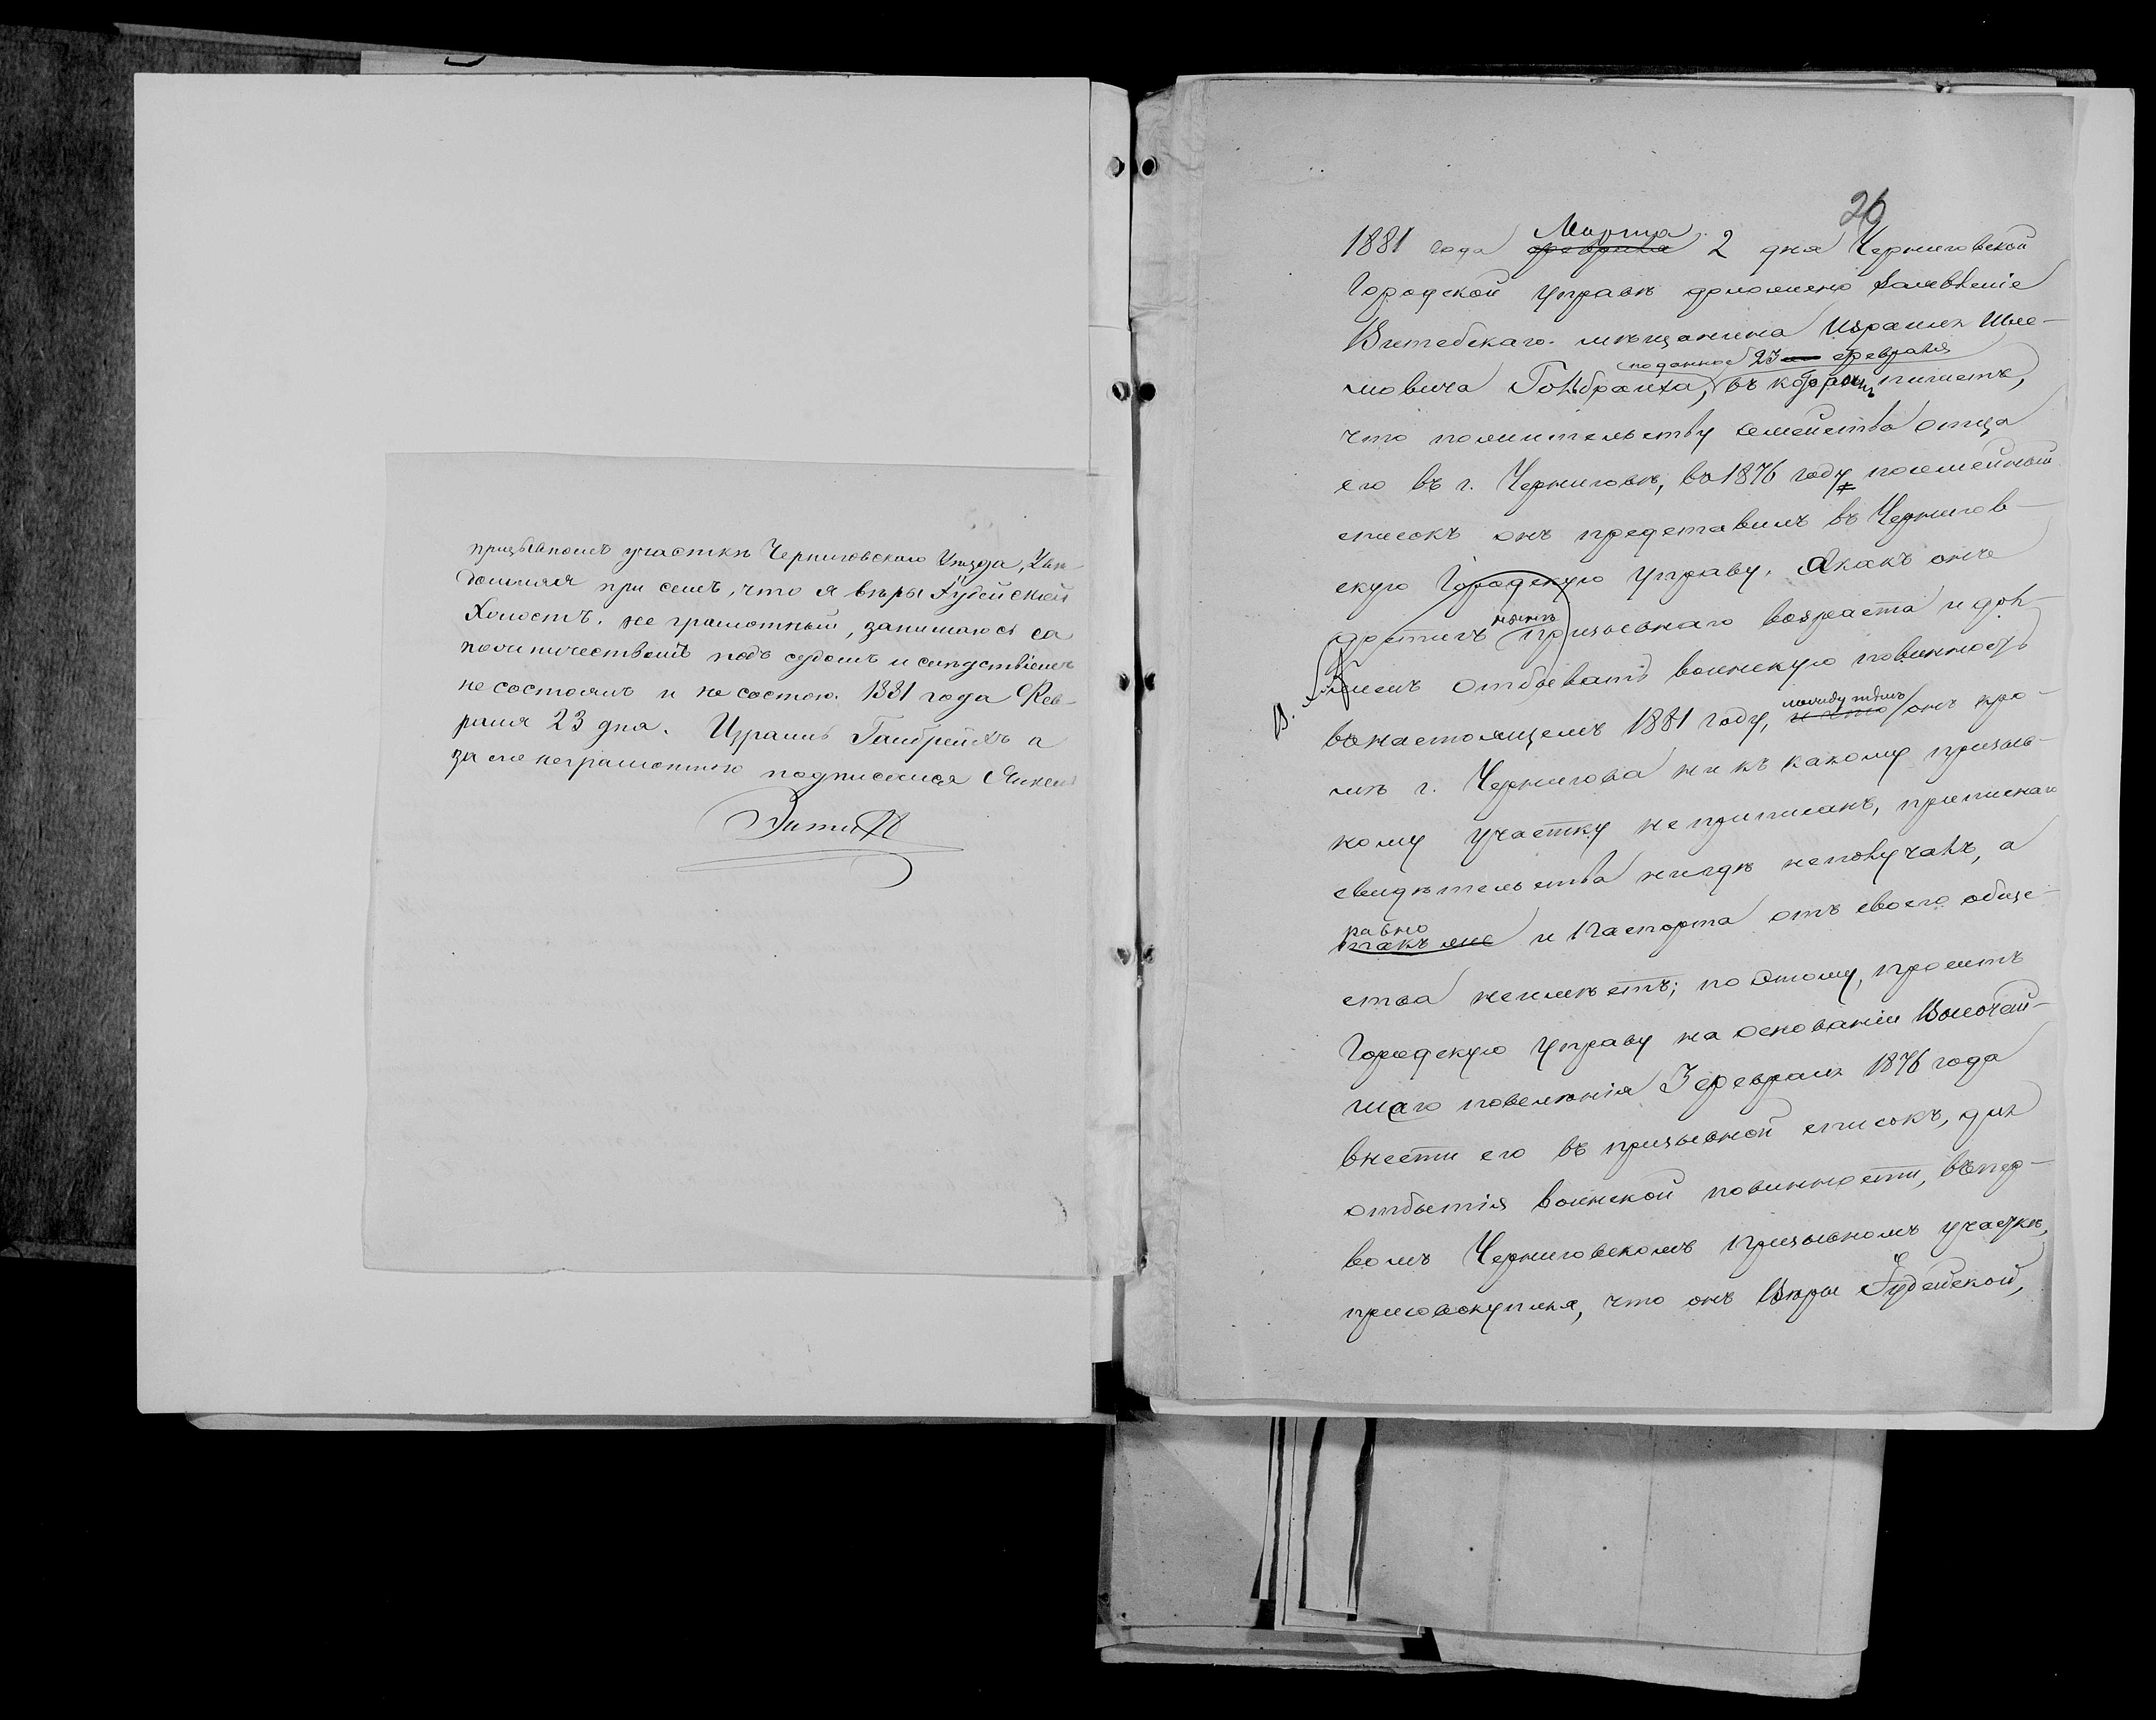 призывномъ участкѣ Черниговскаго Уѣзда,
при семъ, что я вѣры Іудейской
Холостъ, не грамотный, занимаюсь са
подъ судомъ и слѣдствіемъ
не состоялъ и не состою. 1881 года Фев-
раля 23 дня. Израиль Гамбрейхъ а
за его неграмотного подписался
26
Марта
1881 года февраля 2 дня Черниговской
Городской Управѣ доложено заявленіе
Витебскаго мѣщанина Израиля Шле-
поданное 23 февраля
мовича въ которомъ пишетъ,
что по жительству семейства отца
его въ г. Черниговѣ, въ 1876 году посемейный
списокъ онъ представилъ въ Чернигов-
скую Городскую Управу. А какъ онъ
нынѣ
достигъ призывнаго возраста и дол-
женъ отбывать воинскую повинность
В.
въ настоящемъ 1881 году, онъ кро-
между тѣмъ
мѣ г. Чернигова ни къ какому призыв-
ному участку не приписанъ, приписнаго
свидѣтельства нигдѣ неполучалъ, а
равно
такъ же и паспорта отъ своего обще-
ства неимѣетъ; по этому, проситъ
Городскую Управу на основаніи Высочай-
шаго повелѣнія 3 февраля 1876 года
внести его въ призывной списокъ, для
отбытія воинской повинности, въ пер-
вомъ Черниговскомъ призывномъ участкѣ,
присовокупляя, что онъ Вѣры Іудейской,